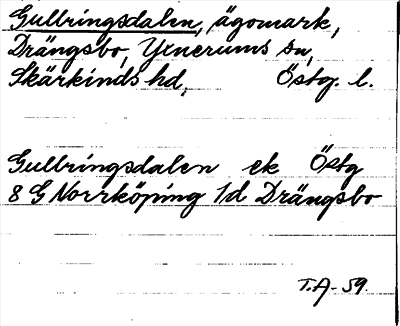 Gullbringsdalen, ägomark,
Drängsbo, Yxnerums sn,
Skärkinds hd, Östg. l.
Gullbringsdalen ek Östg
8 G Norrköping 1d Drängsbo
T.A-59.